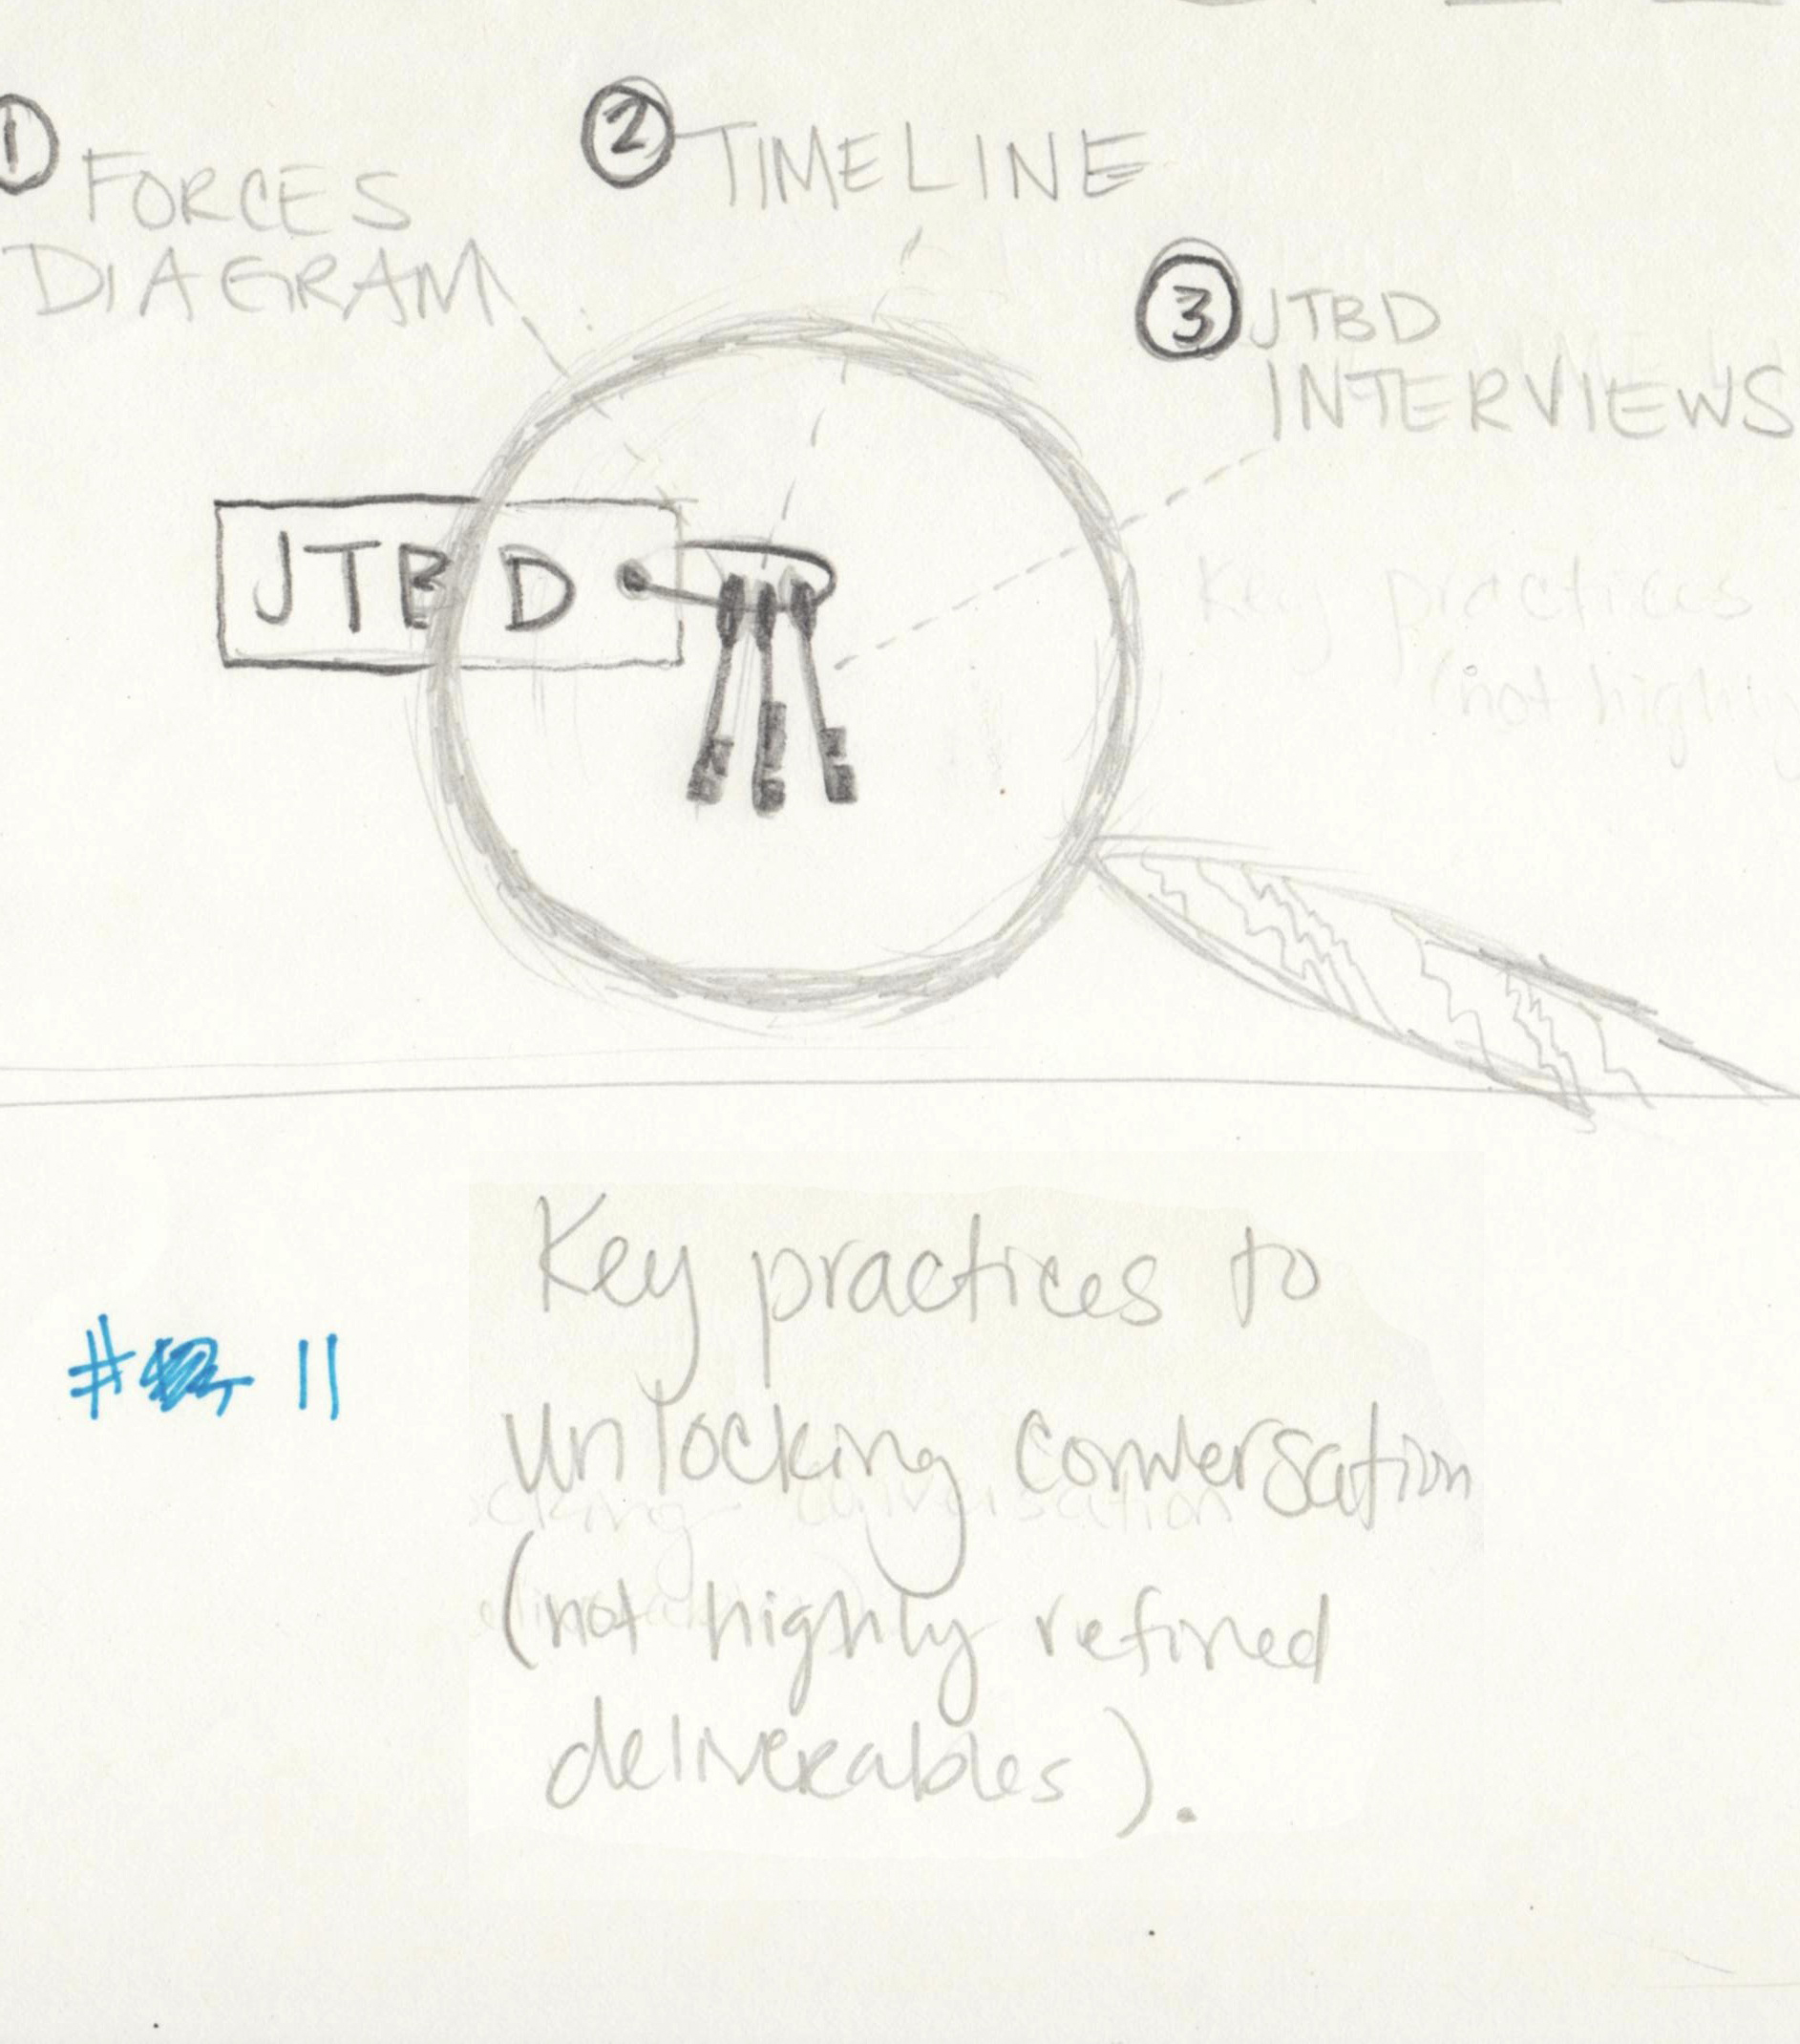 ① FORCES
DIAGRAM
② TIMELINE
③ JTBD
INTERVIEWS
JTBD
Key practices
(not highly
# 11
Key practices to
unlocking conversation
(not highly refined
deliverables).
cking conversation